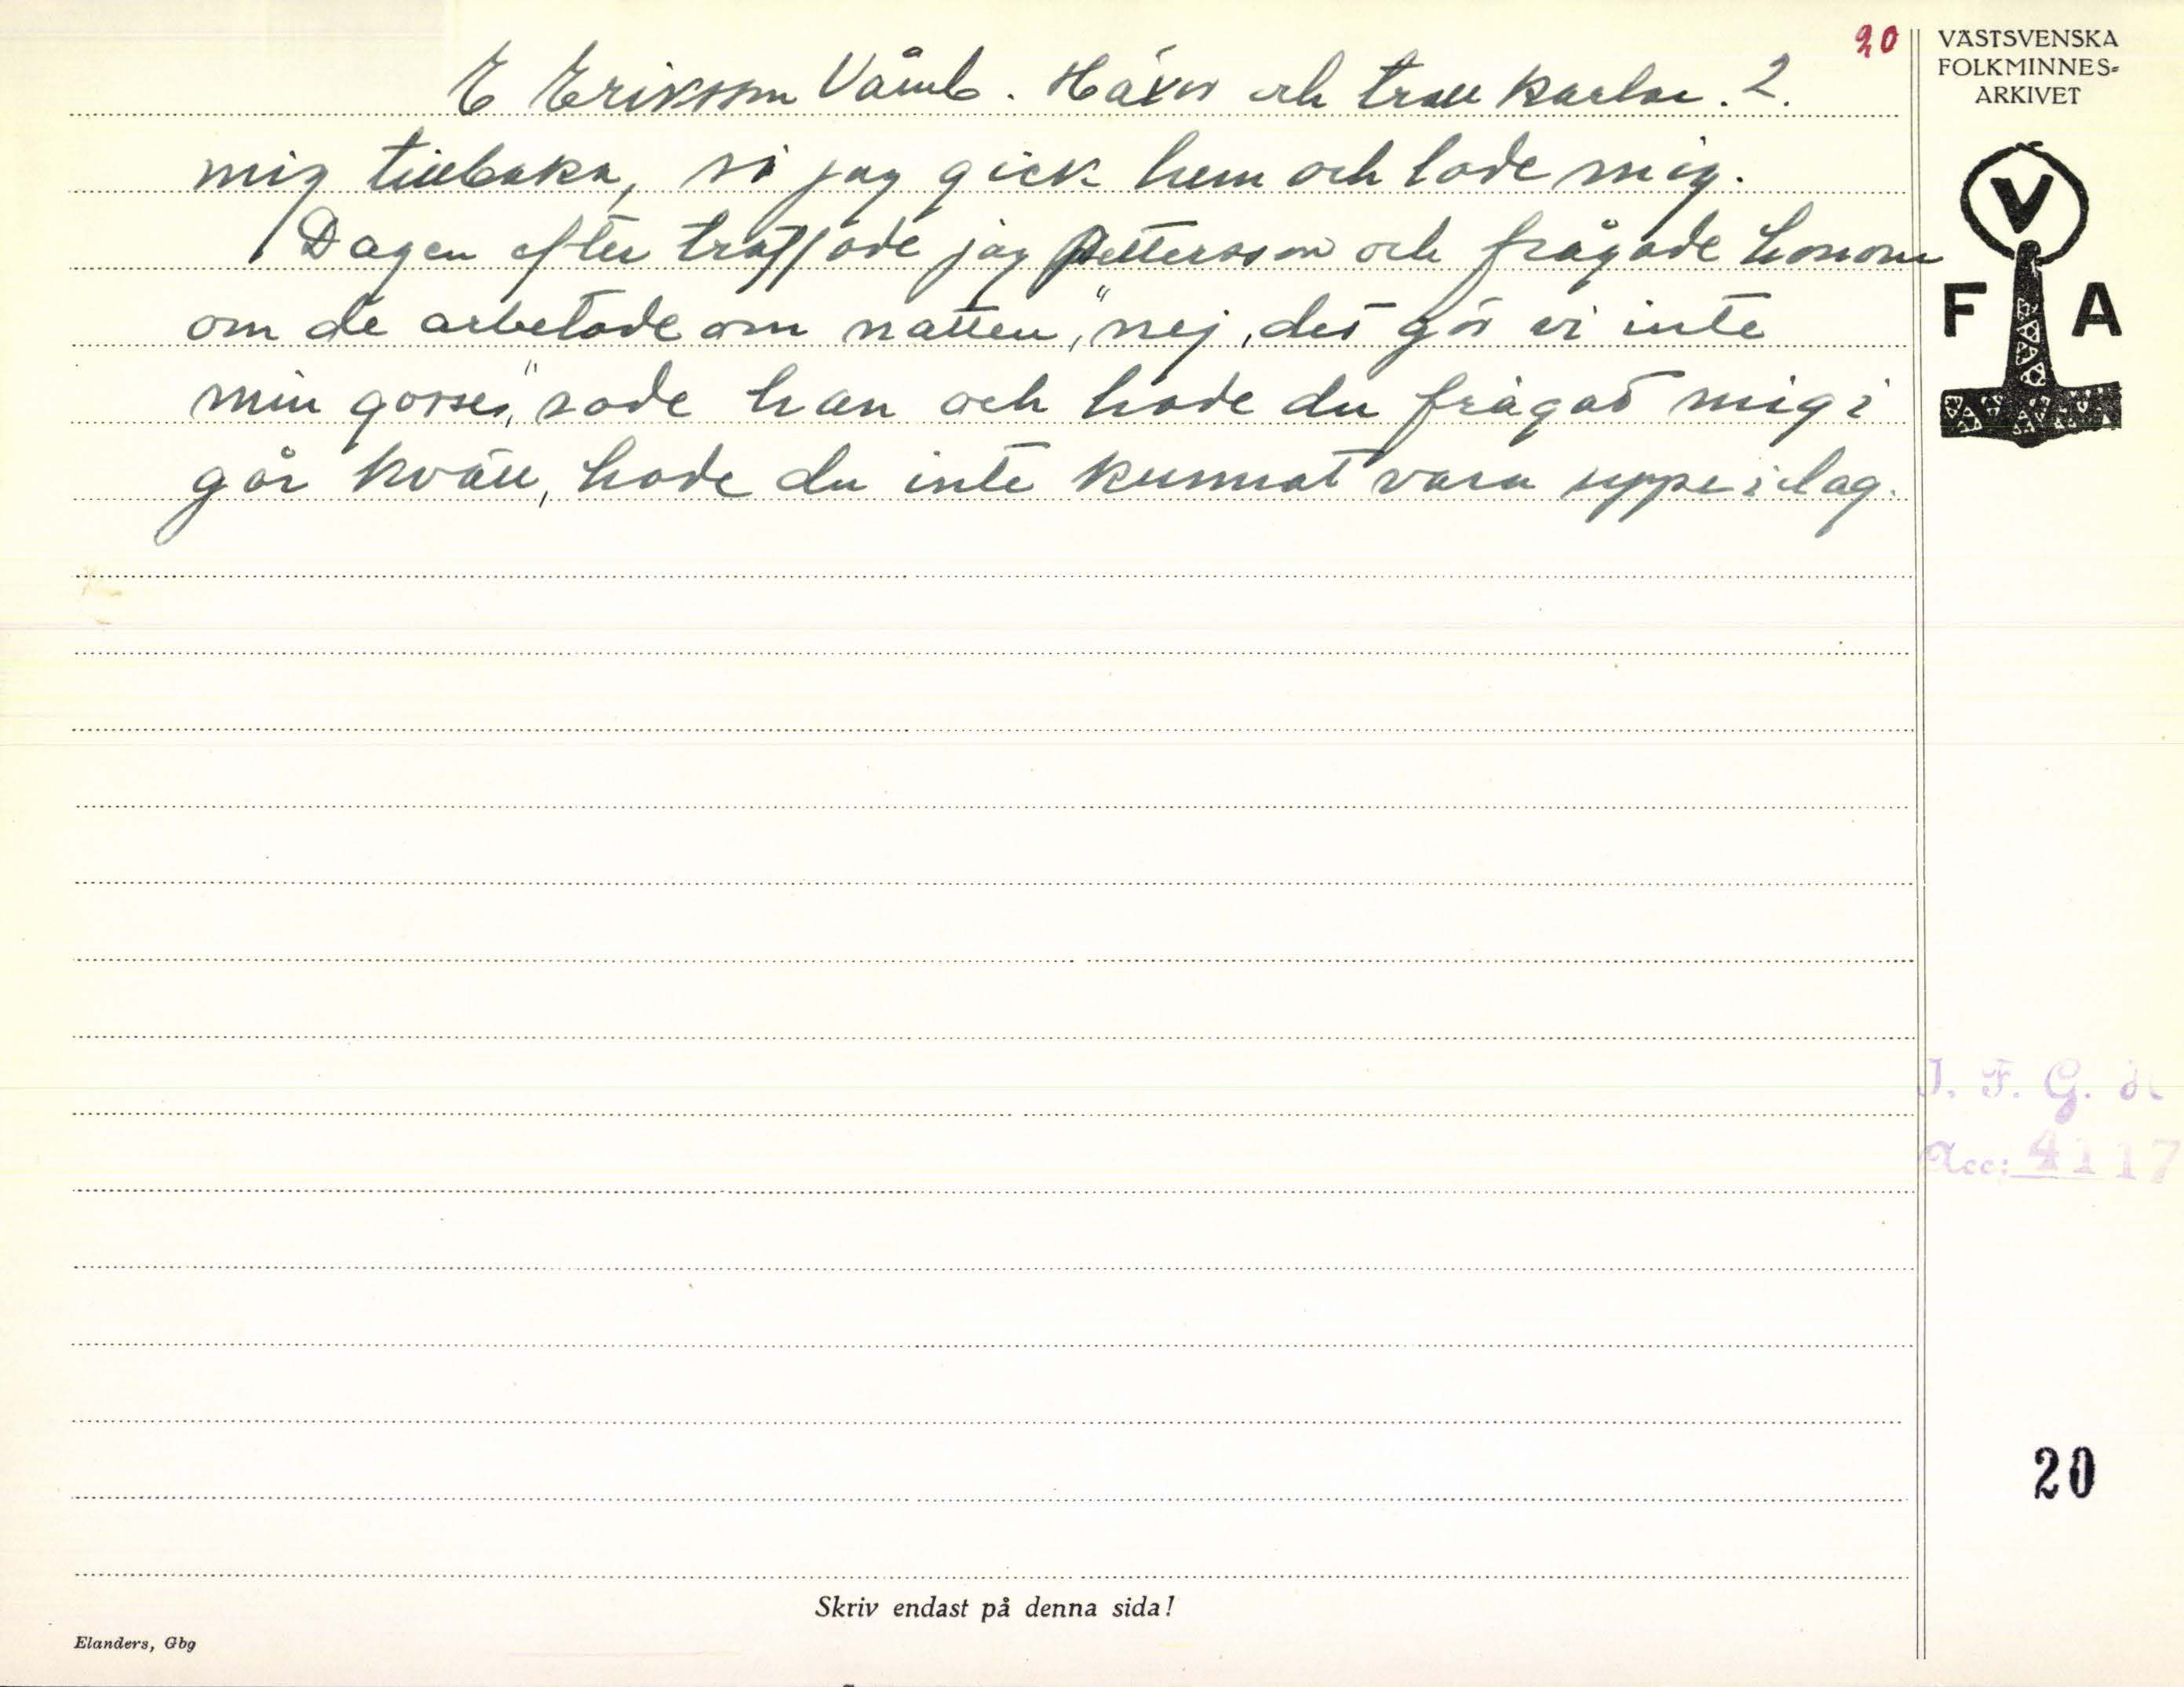 20
E Eriksson Våmb. Häxor och troll karlar. 2.
mig tillbaka, så jag gick hem och lade mig.
Dagen efter träffade jag Pettersson och frågade honom
om de arbetade om natten, "nej, det gör vi inte
min gosse," sade han och hade du frågat mig i
går kväll, hade du inte kunnat vara uppe i dag.
VÄSTSVENSKA
FOLKMINNES-
ARKIVET
V
F A
I. F. G. H.
Acc: 4117
20
Skriv endast på denna sida!
Elanders, Gbg